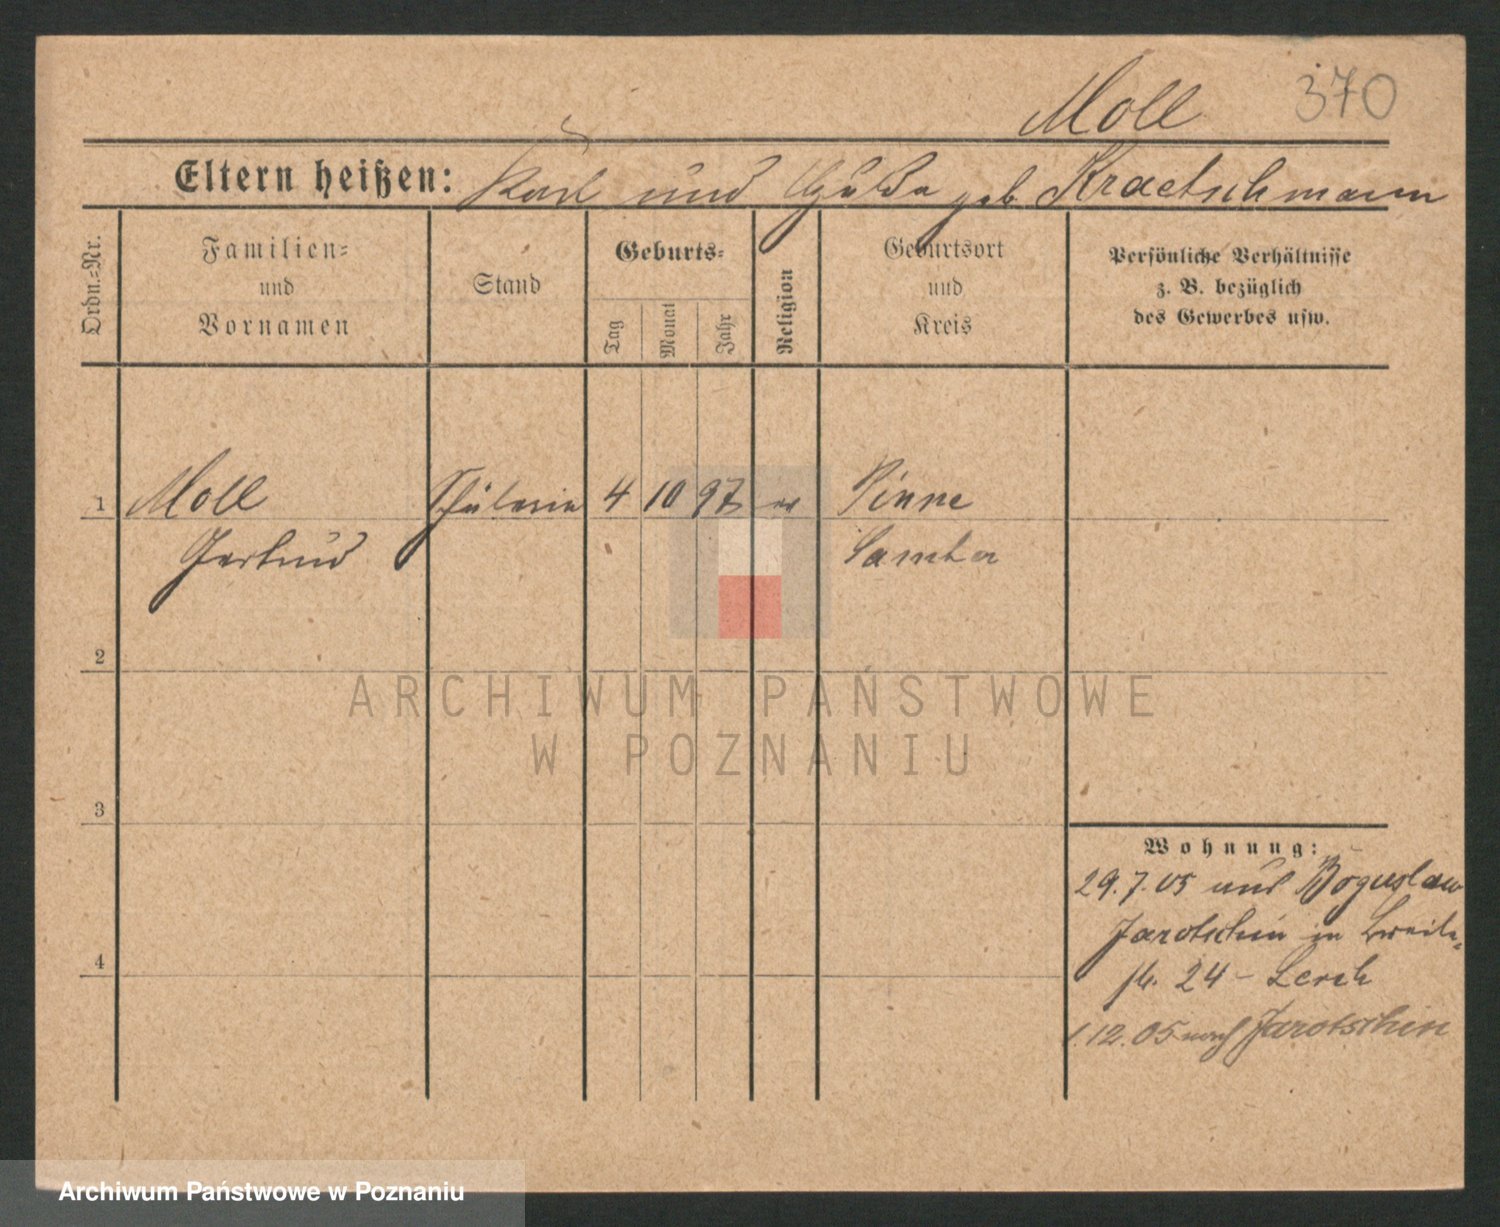 Moll 370
Eltern heißen: Karl und Hulda geb. Kraetschmann
Ordn.-Nr.
Familien-
und
Vornamen
Stand
Geburts-
Tag
Monat
Jahr
Religion
Geburtsort
und
Kreis
Persönliche Verhältnisse
z. B. bezüglich
des Gewerbes usw.
1 Moll Schülerin 4 10 97 ev Pinne
Gertrud Samter
2
ARCHIWUM PAŃSTWOWE
W POZNANIU
3
4
Wohnung:
29.7.05 aus Boguslaw
Jarotschin in
24 - Lerch
1.12.05 nach Jarotschin
Archiwum Państwowe w Poznaniu